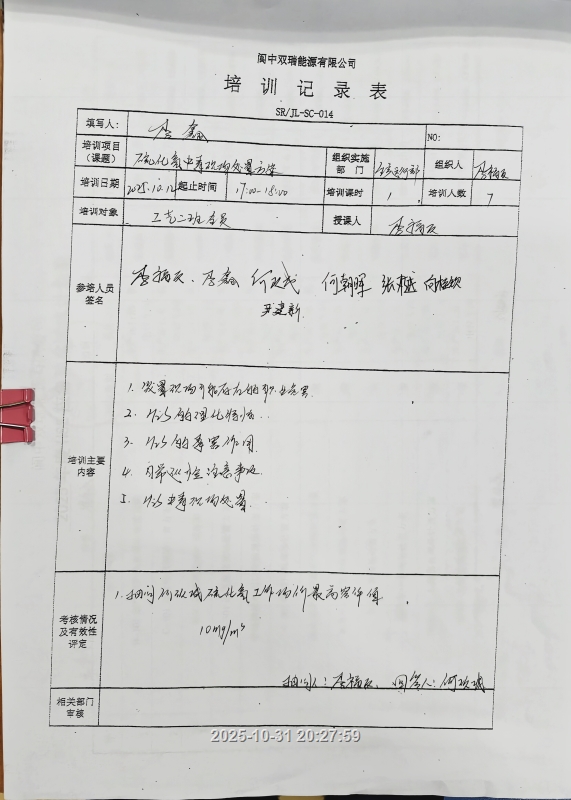 阆中双瑞能源有限公司
培训记录表
SR/JL-SC-014
填写人: 李鑫 NO:
培训项目(课题) 硫化氢中毒现场处置方案 组织实施部门 组织人 李福友
培训日期 2025.10.12 起止时间 17:00-18:00 培训课时 1 培训人数 7
培训对象 工艺二班全员 授课人 李福友
参培人员签名 李福友、李鑫 何双成 何朝晖 张越
尹建新
培训主要内容
1. 装置现场存在的职业危害
2. H2S的理化特性.
3. H2S的毒害作用
4. 内部巡检注意事项
5. H2S中毒现场处置.
考核情况及有效性评定
1. 抽问何双成硫化氢工作场所最高容许值.
10mg/m³
抽问人:李福友、回答人:何双成
相关部门审核
2025-10-31 20:27:59